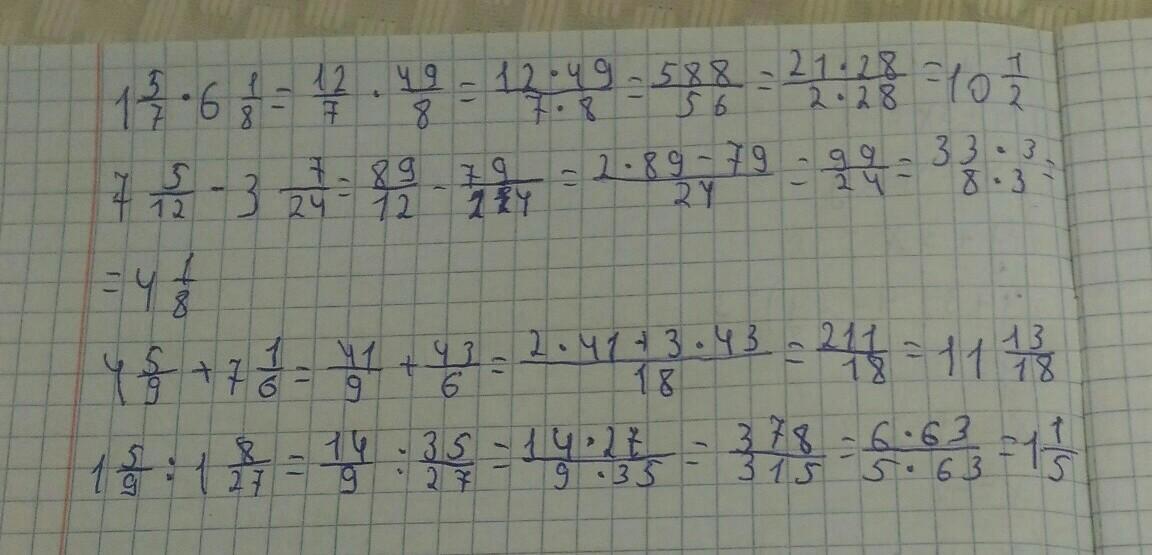 1 5/7 · 6 1/8 = 12/7 · 49/8 = 12·49/7·8 = 588/56 = 21·28/2·28 = 10 1/2
7 5/12 - 3 7/24 = 89/12 - 79/24 = 2·89-79/24 = 99/24 = 33·3/8·3 =
= 4 1/8
4 5/9 + 7 1/6 = 41/9 + 43/6 = 2·41+3·43/18 = 211/18 = 11 13/18
1 5/9 : 1 8/27 = 14/9 : 35/27 = 14·27/9·35 = 378/315 = 6·63/5·63 = 1 1/5